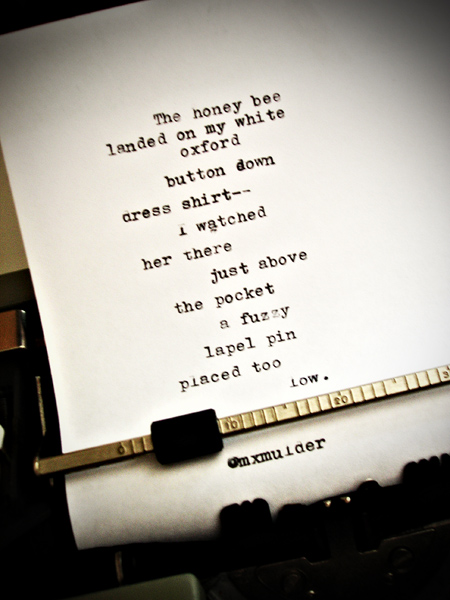 The honey bee
landed on my white
oxford
button down
dress shirt--
i watched
her there
just above
the pocket
a fuzzy
lapel pin
placed too
low.
0 10 20 3
@mxmulder